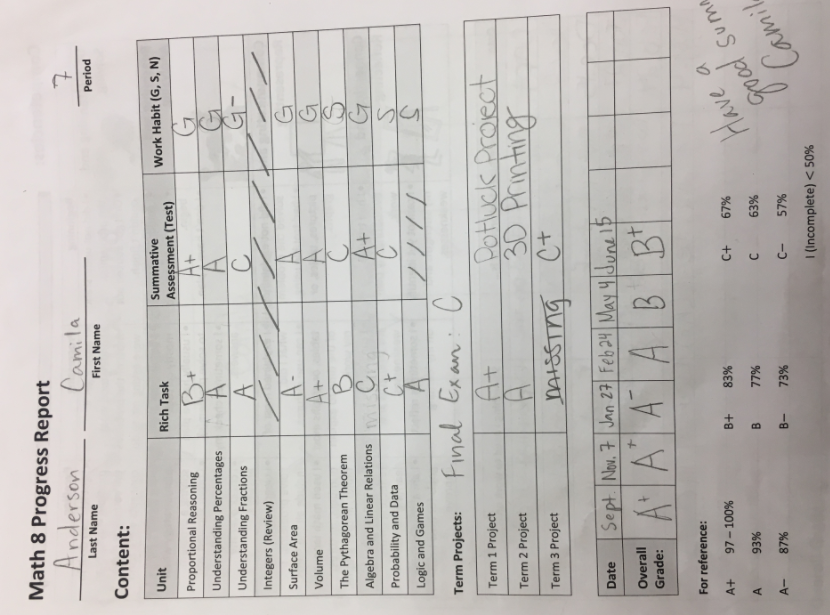 Math 8 Progress Report
Anderson Camila 7
Last Name First Name Period
Content:
Unit Rich Task Summative Assessment (Test) Work Habit (G, S, N)
Proportional Reasoning B+ A+ G
Understanding Percentages A A G
Understanding Fractions A C G-
Integers (Review)
Surface Area A- A G
Volume A+ A G
The Pythagorean Theorem B C S
Algebra and Linear Relations C A+ G
Probability and Data C+ C S
Logic and Games A S
Term Projects: Final Exam: C
Term 1 Project A+ Potluck Project
Term 2 Project A 3D Printing
Term 3 Project missing C+
Date Sept. Nov. 7 Jan 27 Feb 24 May 4 June 15
Overall Grade: A+ A+ A- A B B+
For reference:
A+ 97 – 100% B+ 83% C+ 67%
A 93% B 77% C 63%
A– 87% B– 73% C– 57%
I (Incomplete) < 50%
Have a
good